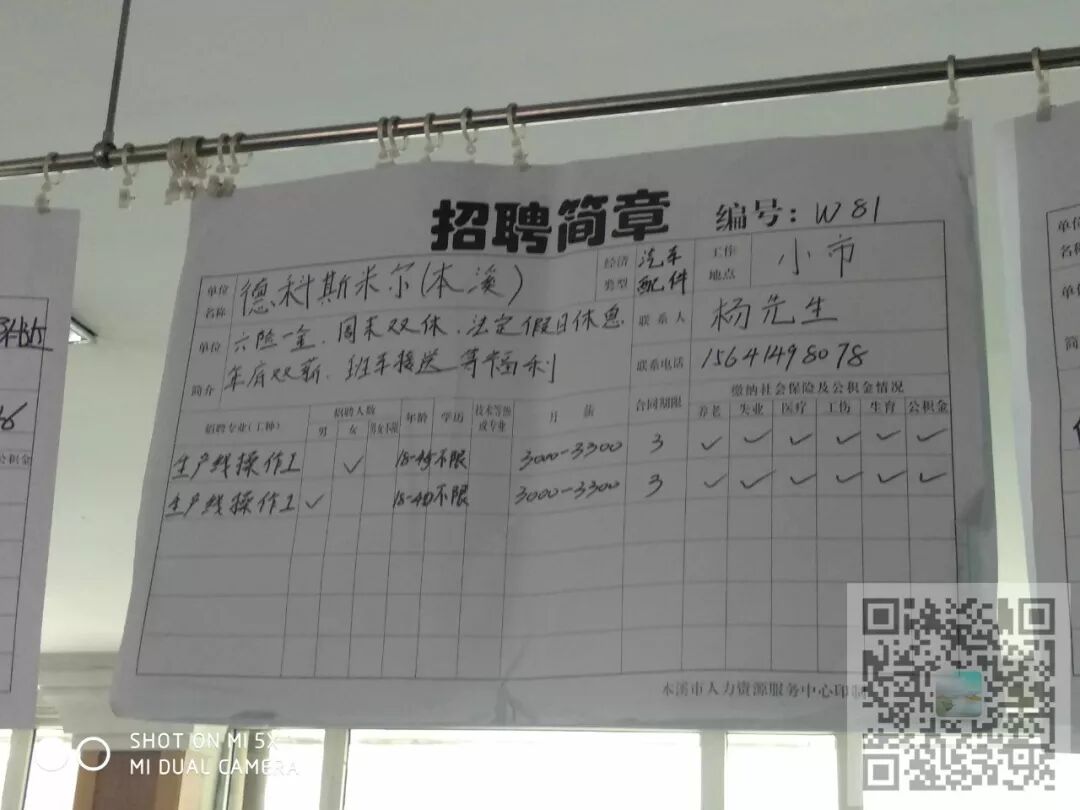 招聘简章
编号：W81
单位名称 德科斯米尔(本溪) 经济类型 汽车配件 工作地点 小市
单位简介 六险一金.周末双休.法定假日休息
年底双薪.班车接送等福利
联系人 杨先生
联系电话 15641498078
招聘专业(工种) 招聘人数 男 女 男女不限 年龄 学历 技术等级或专业 月薪 合同期限 缴纳社会保险及公积金情况
养老 失业 医疗 工伤 生育 公积金
生产线操作工 ✓ 18-45 不限 3000-3300 3 ✓ ✓ ✓ ✓ ✓ ✓
生产线操作工 ✓ 18-40 不限 3000-3300 3 ✓ ✓ ✓ ✓ ✓ ✓
本溪市人力资源服务中心印制
单位
名称
公积金
SHOT ON MI 5X
MI DUAL CAMERA